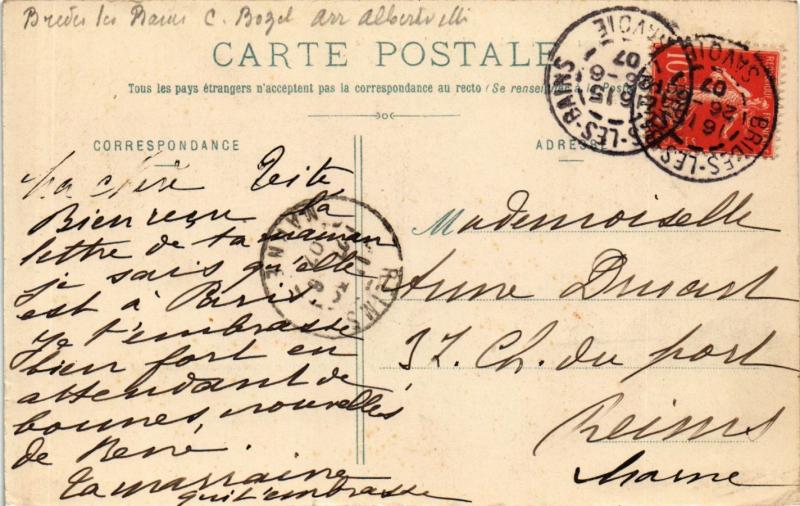 Brides les Bains C. Bozel arr Albertville
CARTE POSTALE
Tous les pays étrangers n'acceptent pas la correspondance au recto (Se renseigner à la Poste)
CORRESPONDANCE
Ma chère Tite,
Bien reçu la
lettre de ta maman
je sais qu'elle
est à Paris
Je t'embrasse
bien fort en
attendant de
bonnes nouvelles
de René.
Ta marraine
qui t'embrasse
ADRESSE
Mademoiselle
Anne Druart
37. Ch. du port
Reims
Marne
BRIDES-LES-BAINS
SAVOIE
15
26-6
07
BRIDES-LES-BAINS
SAVOIE
26-6
07
10
REIMS
MARNE